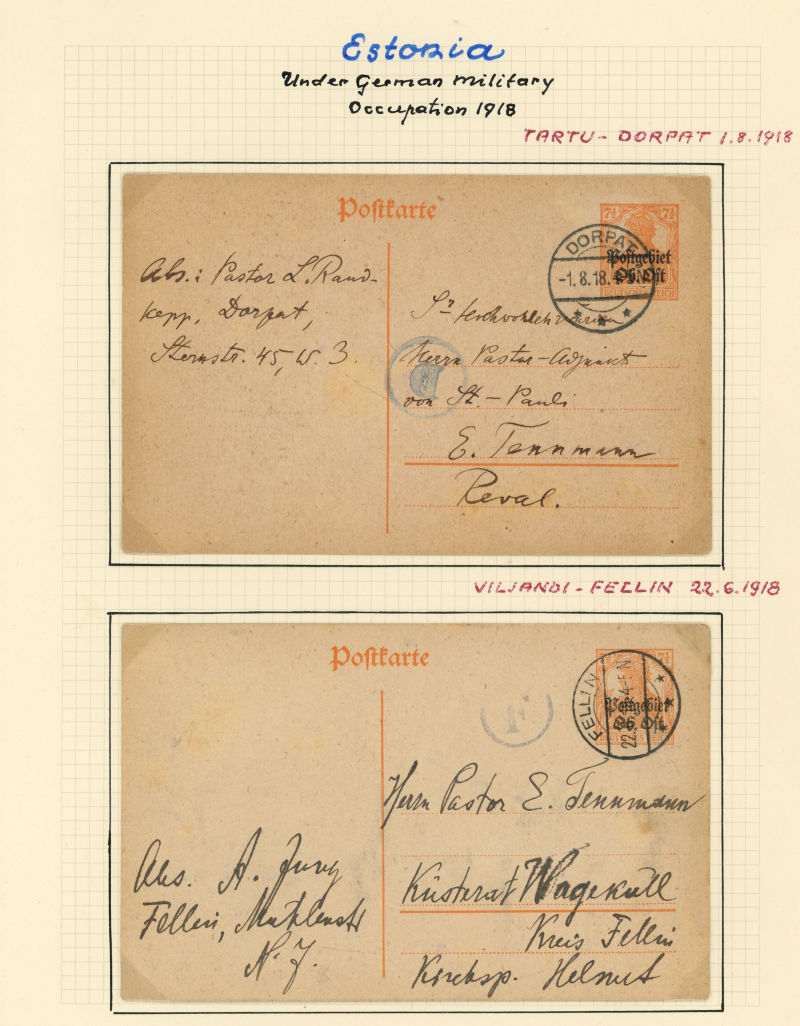 Estonia
Under German Military
Occupation 1918
TARTU - DORPAT 1.8.1918
Postkarte
7½ 7½
DORPAT
Postgebiet
-1.8.18.
Ob. Ost
DEUTSCHES REICH
Abs.: Pastor L. Raud-
kepp, Dorpat,
Sternstr. 45, W. 3.
Sr.
Herrn Pastor-Adjunkt
von St. - Pauli
E. Tennmann
Reval.
VILJANDI - FELLIN 22.6.1918
Postkarte
7½
FELLIN
Postgebiet
Ob. Ost
22.
4-5N
DEUTSCHES REICH
F
Herrn Pastor E. Tennmann
Küsterat Wageküll
Kreis Fellin
Kirchsp. Helmet
Abs. A. Jung
Fellin, Mühlenstr
N. 7.